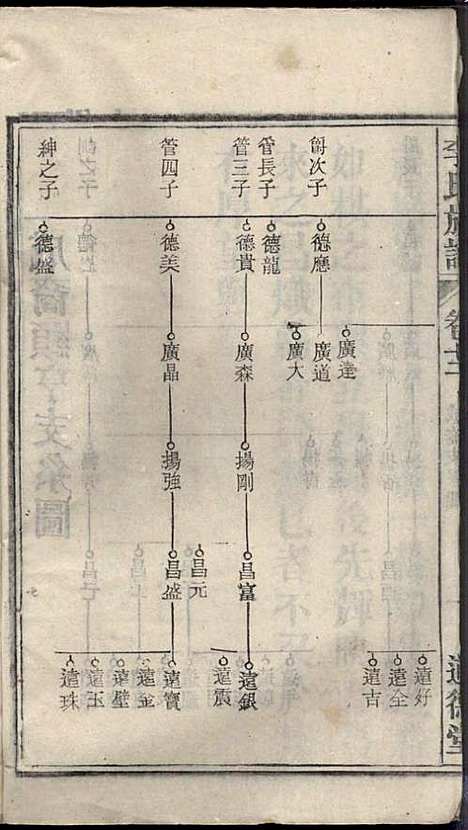 李氏族譜
卷十二
道德堂
爵次子
管長子
管三子
管四子
紳之子
德應
德龍
德貴
德美
德盛
廣達
廣道
廣大
廣森
廣晶
揚剛
揚強
昌富
昌元
昌盛
遠好
遠全
遠吉
遠銀
遠宸
遠寶
遠金
遠璧
遠玉
遠珠